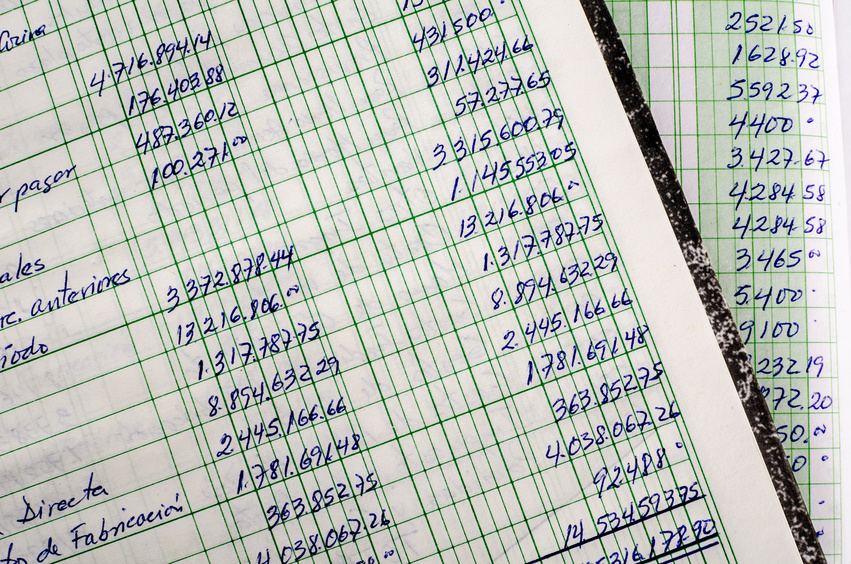 Cocina
4.716.894.14
176.403.88
487.360.12
r pagar 100.271.00
ales
rc. anteriores 3 372.878.44
íodo 13 216.806.00
1.317.787.75
8.894.632.29
2.445.166.66
1.781.691.48
Directa 363.852.75
to de Fabricación 4 038.067.26
431500.
311.424.66
57.277.65
3 315.600.79
1.145553.05
13 216.806.00
1.317.787.75
8.894.632.29
2.445.166.66
1781.691.48
363.852.75
4.038.067.26
92.488
14 534.593.75
531617890
2521.50
1628.92
5592 37
4400
3427.67
4.284.58
4.284.58
3.465 00
5.400
9100
232 19
72.20
50.00
0